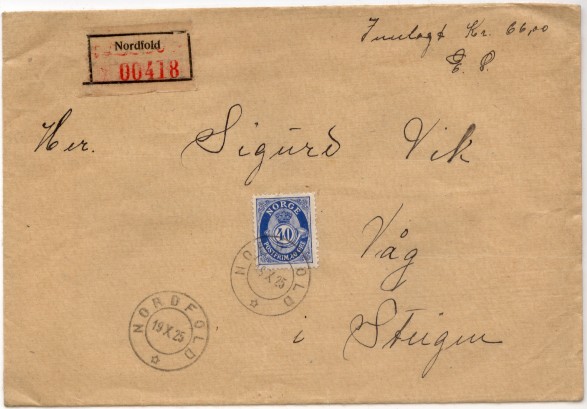 Nordfold
00418
Innlagt Kr. 66,00
E. P.
Her. Sigurd Vik
NORGE
40
POSTFRIM. 40 ØRE
Våg
i Steigen
NORDFOLD
19 X 25
NORDFOLD
19 X 25